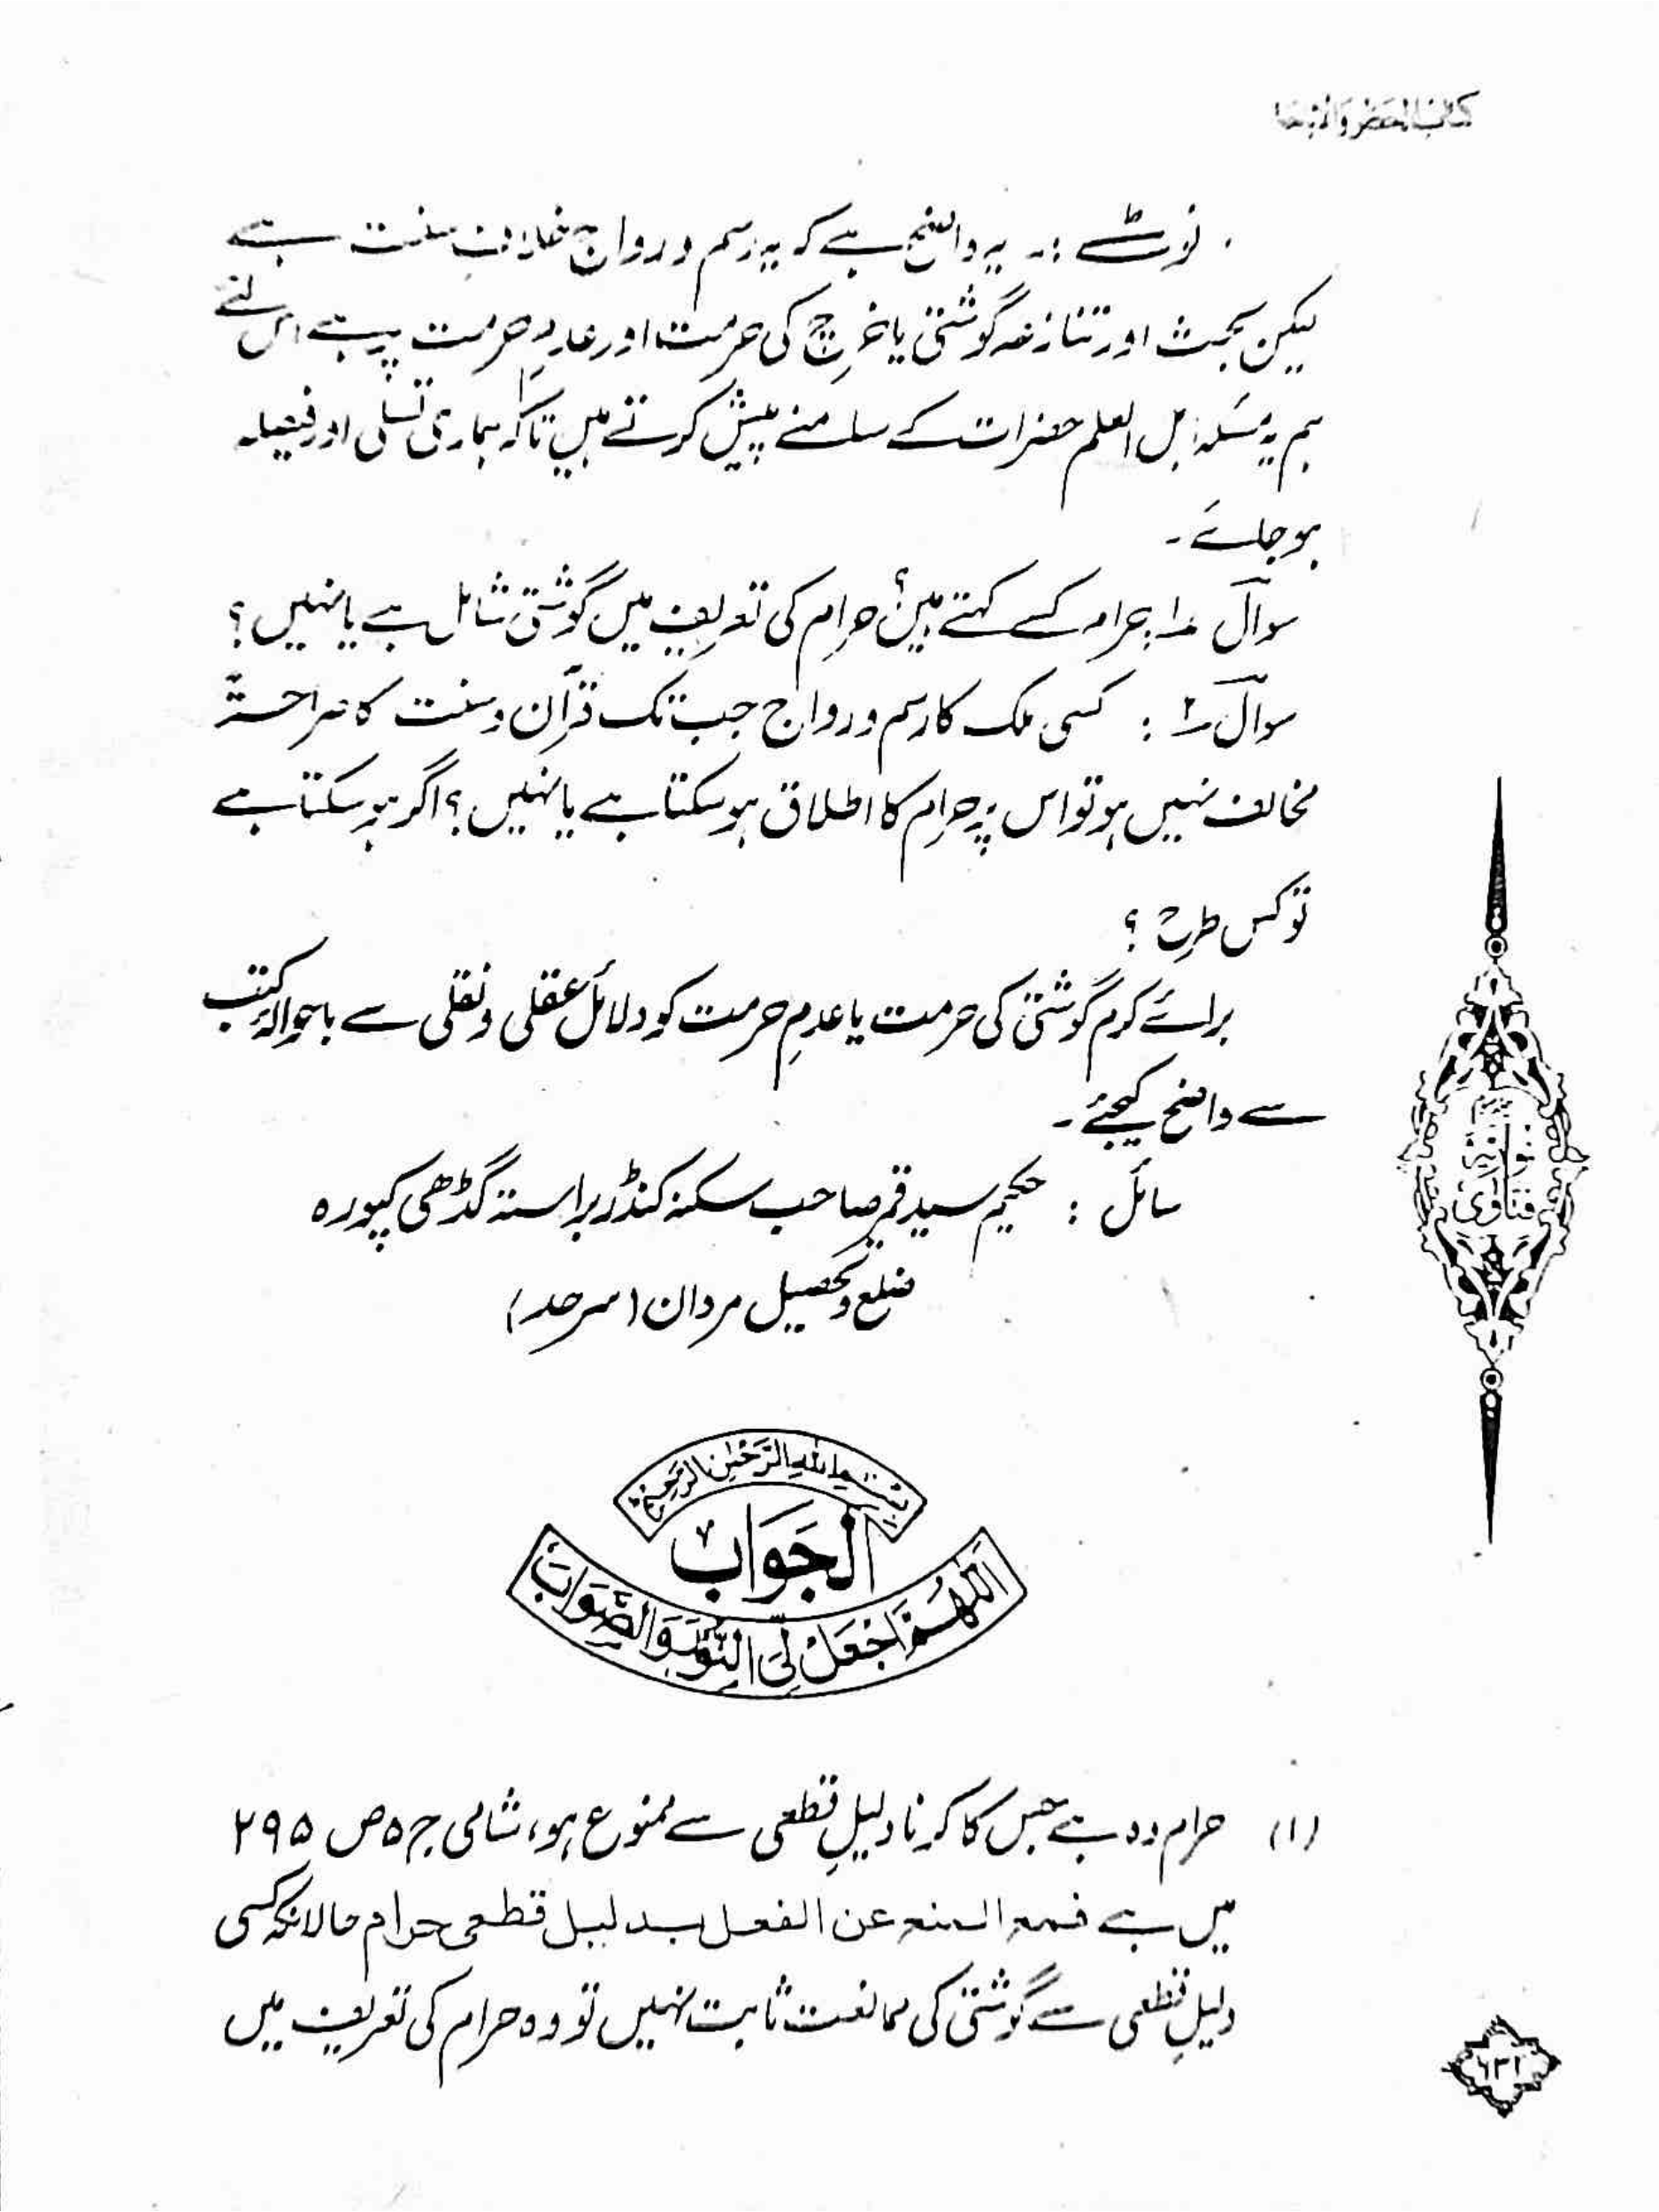 کتاب الحظر والاباحۃ
نوٹ :۔ یہ واضح ہے کہ یہ رسم و رواج خلاف سنت ہے
لیکن بحث اور تنازعہ گوشتی یا خرچ کی حرمت اور عدمِ حرمت پر ہے اس لئے
ہم یہ مسئلہ اہل العلم حضرات کے سامنے پیش کرتے ہیں تاکہ ہماری تسلی اور فیصلہ
ہو جائے ۔
سوال ۱ : حرام کسے کہتے ہیں؟ حرام کی تعریف میں گوشتی شامل ہے یا نہیں ؟
سوال ۲ : کسی ملک کا رسم و رواج جب تک قرآن و سنت کا صراحتہً
مخالف نہیں ہو تو اس پر حرام کا اطلاق ہو سکتا ہے یا نہیں ؟ اگر ہو سکتا ہے
تو کس طرح ؟
برائے کرم گوشتی کی حرمت یا عدمِ حرمت کو دلائل عقلی و نقلی سے باحوالہ کتب
سے واضح کیجئے ۔
سائل : حکیم سید قمر صاحب سکنہ کنڈر براستہ گڈھی کپورہ
ضلع و تحصیل مردان (سرحد)
بسم اللہ الرحمٰن الرحیم
اَلجَوَاب
اَللّٰھُمَّ اجْعَلْ لِیَ النُّوْرَ وَالصَّوَابَ
(۱) حرام وہ ہے جس کا کرنا دلیلِ قطعی سے ممنوع ہو، شامی ج ۵ ص ۲۹۵
میں ہے فمع المنع عن الفعل بدلیل قطعی حرام حالانکہ کسی
دلیلِ قطعی سے گوشتی کی ممانعت ثابت نہیں تو وہ حرام کی تعریف میں
فتاوی
نوریہ
۶۳۲